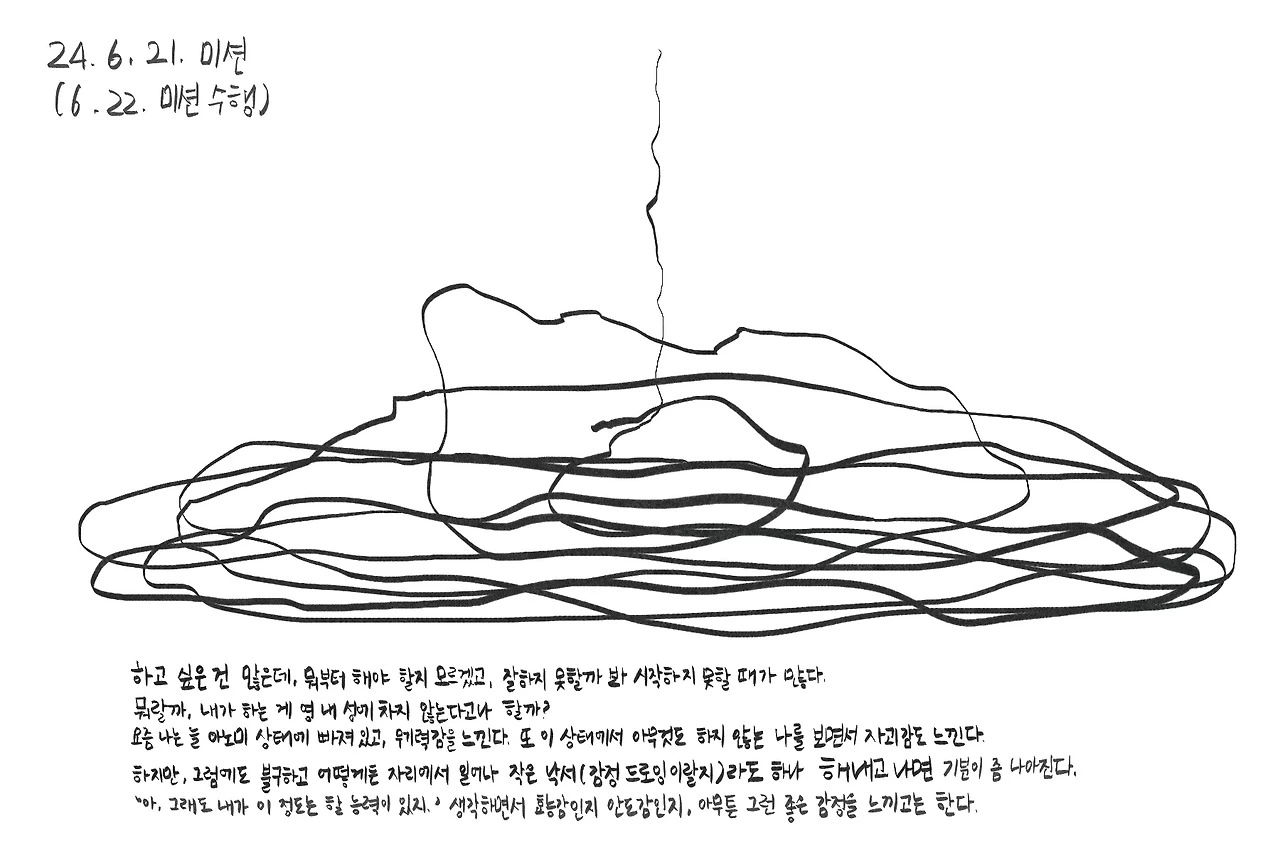 24. 6. 21. 미션
(6. 22. 미션 수행)
하고 싶은 건 많은데, 뭐부터 해야 할지 모르겠고, 잘하지 못할까 봐 시작하지 못할 때가 많다.
뭐랄까, 내가 하는 게 영 내 성에 차지 않는다고나 할까?
요즘 나는 늘 아노미 상태에 빠져 있고, 무기력감을 느낀다. 또 이 상태에서 아무것도 하지 않는 나를 보면서 자괴감도 느낀다.
하지만, 그럼에도 불구하고 어떻게든 자리에서 일어나 작은 낙서(감정 드로잉이랄지)라도 하나 해내고 나면 기분이 좀 나아진다.
'아, 그래도 내가 이 정도는 할 능력이 있지.' 생각하면서 효능감인지 안도감인지, 아무튼 그런 좋은 감정을 느끼고는 한다.